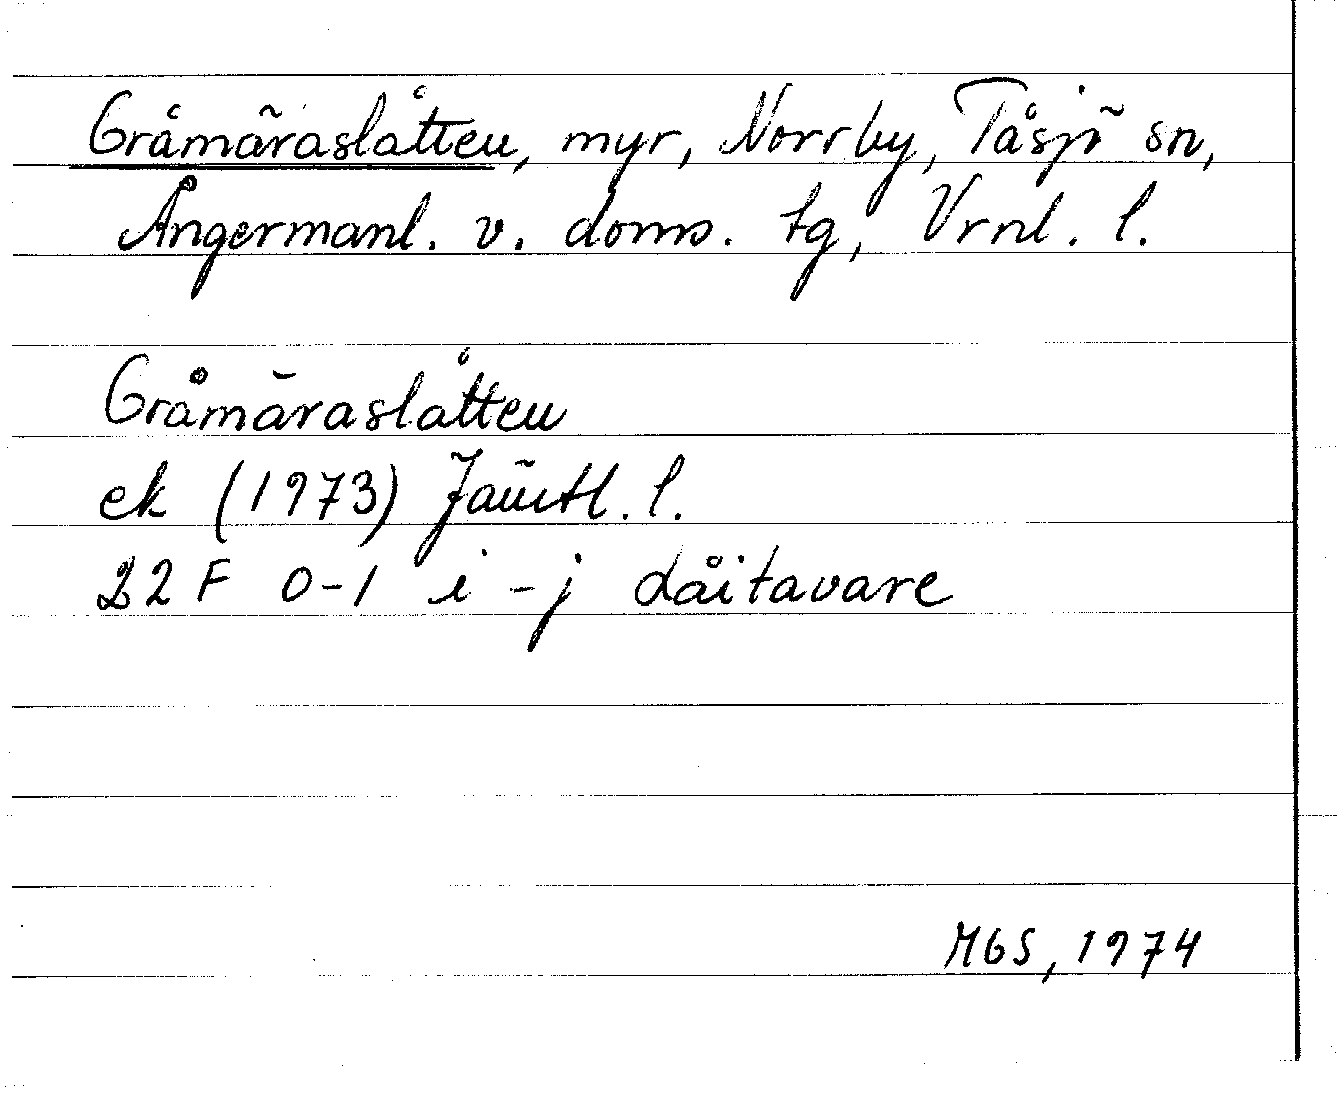 Gråmäraslåtten, myr, Norrby, Tåsjö sn,
Ångermanl. v. doms. tg, Vrnl. l.
Gråmäraslåtten
ek (1973) Jämtl. l.
22 F 0-1 i - j Dåitavare
MGS, 1974